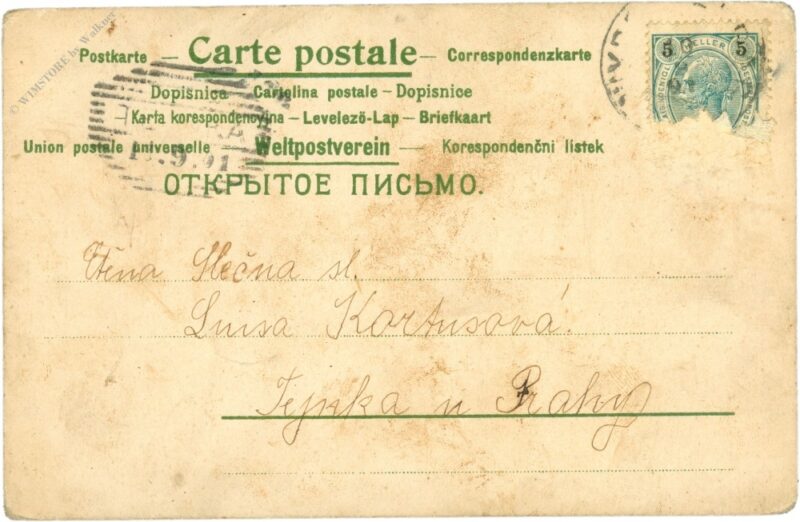 © WIMSTORE by Walkner
Postkarte — Carte postale — Correspondenzkarte
Dopisnica — Cartolina postale - Dopisnice
Karta korespondencyjna – Levelező-Lap – Briefkaart
Union postale universelle — Weltpostverein — Korespondenčni listek
ОТКРЫТОЕ ПИСЬМО.
5 HELLER 5
9.01
Ctěna Slečna sl.
Luisa Kortusová.
u Prahy